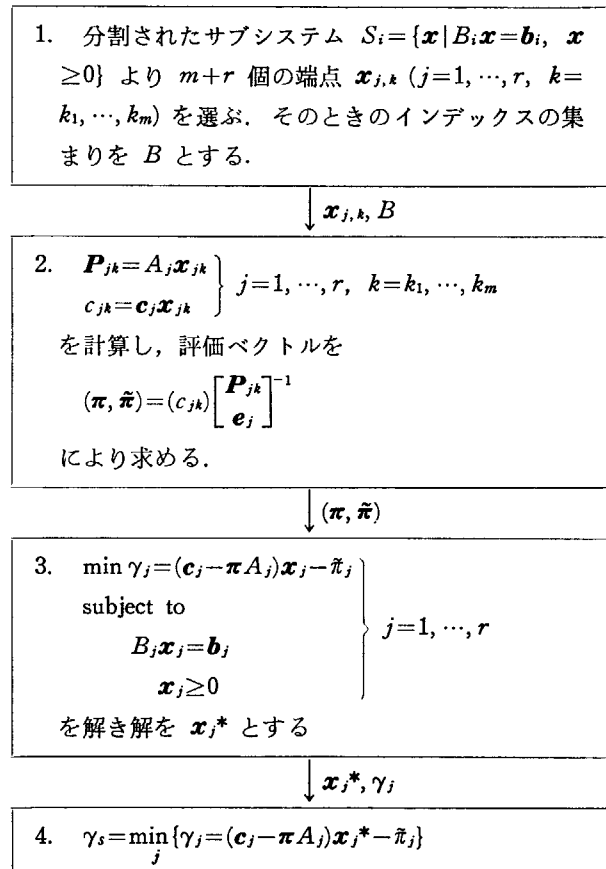 1. 分割されたサブシステム S_i={x|B_ix=b_i, x
≥0} より m+r 個の端点 x_{j,k} (j=1, …, r, k=
k_1, …, k_m) を選ぶ. そのときのインデックスの集
まりを B とする.
↓ x_{j,k}, B
2. P_{jk}=A_jx_{jk}
c_{jk}=c_jx_{jk} } j=1, …, r, k=k_1, …, k_m
を計算し, 評価ベクトルを
(π, π̃)=(c_{jk})[P_{jk} e_j]^{-1}
により求める.
↓ (π, π̃)
3. min γ_j=(c_j−πA_j)x_j−π̃_j
subject to
B_jx_j=b_j } j=1, …, r
x_j≥0
を解き解を x_j* とする
↓ x_j*, γ_j
4. γ_s=min_j{γ_j=(c_j−πA_j)x_j*−π̃_j}